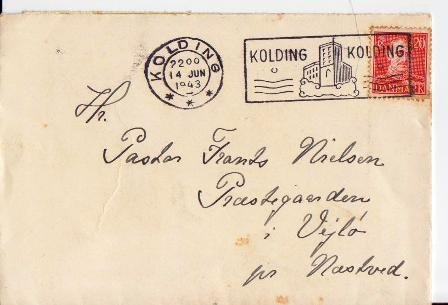 KOLDING
2200
14 JUN
1943
* * *
KOLDING KOLDING
20
DANMARK
Hr.
Pastor Frants Nielsen
Præstegaarden
i Vejlø
pr Næstved.